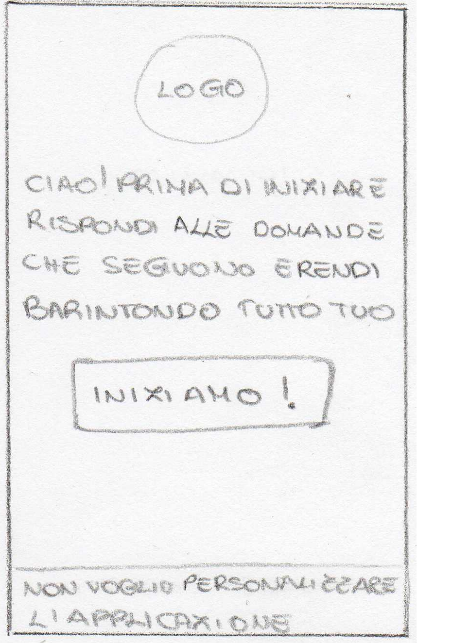 LOGO
CIAO! PRIMA DI INIZIARE
RISPONDI ALLE DOMANDE
CHE SEGUONO E RENDI
BARINTONDO TUTTO TUO
INIZIAMO!
NON VOGLIO PERSONALIZZARE
L'APPLICAZIONE